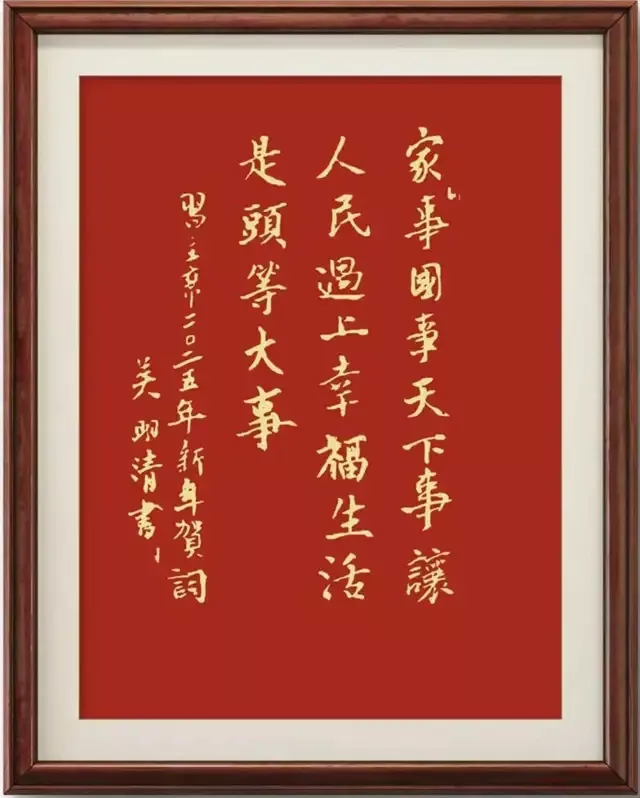 家事國事天下事讓
人民過上幸福生活
是頭等大事
習主席二〇二五年新年賀詞
吴明清書